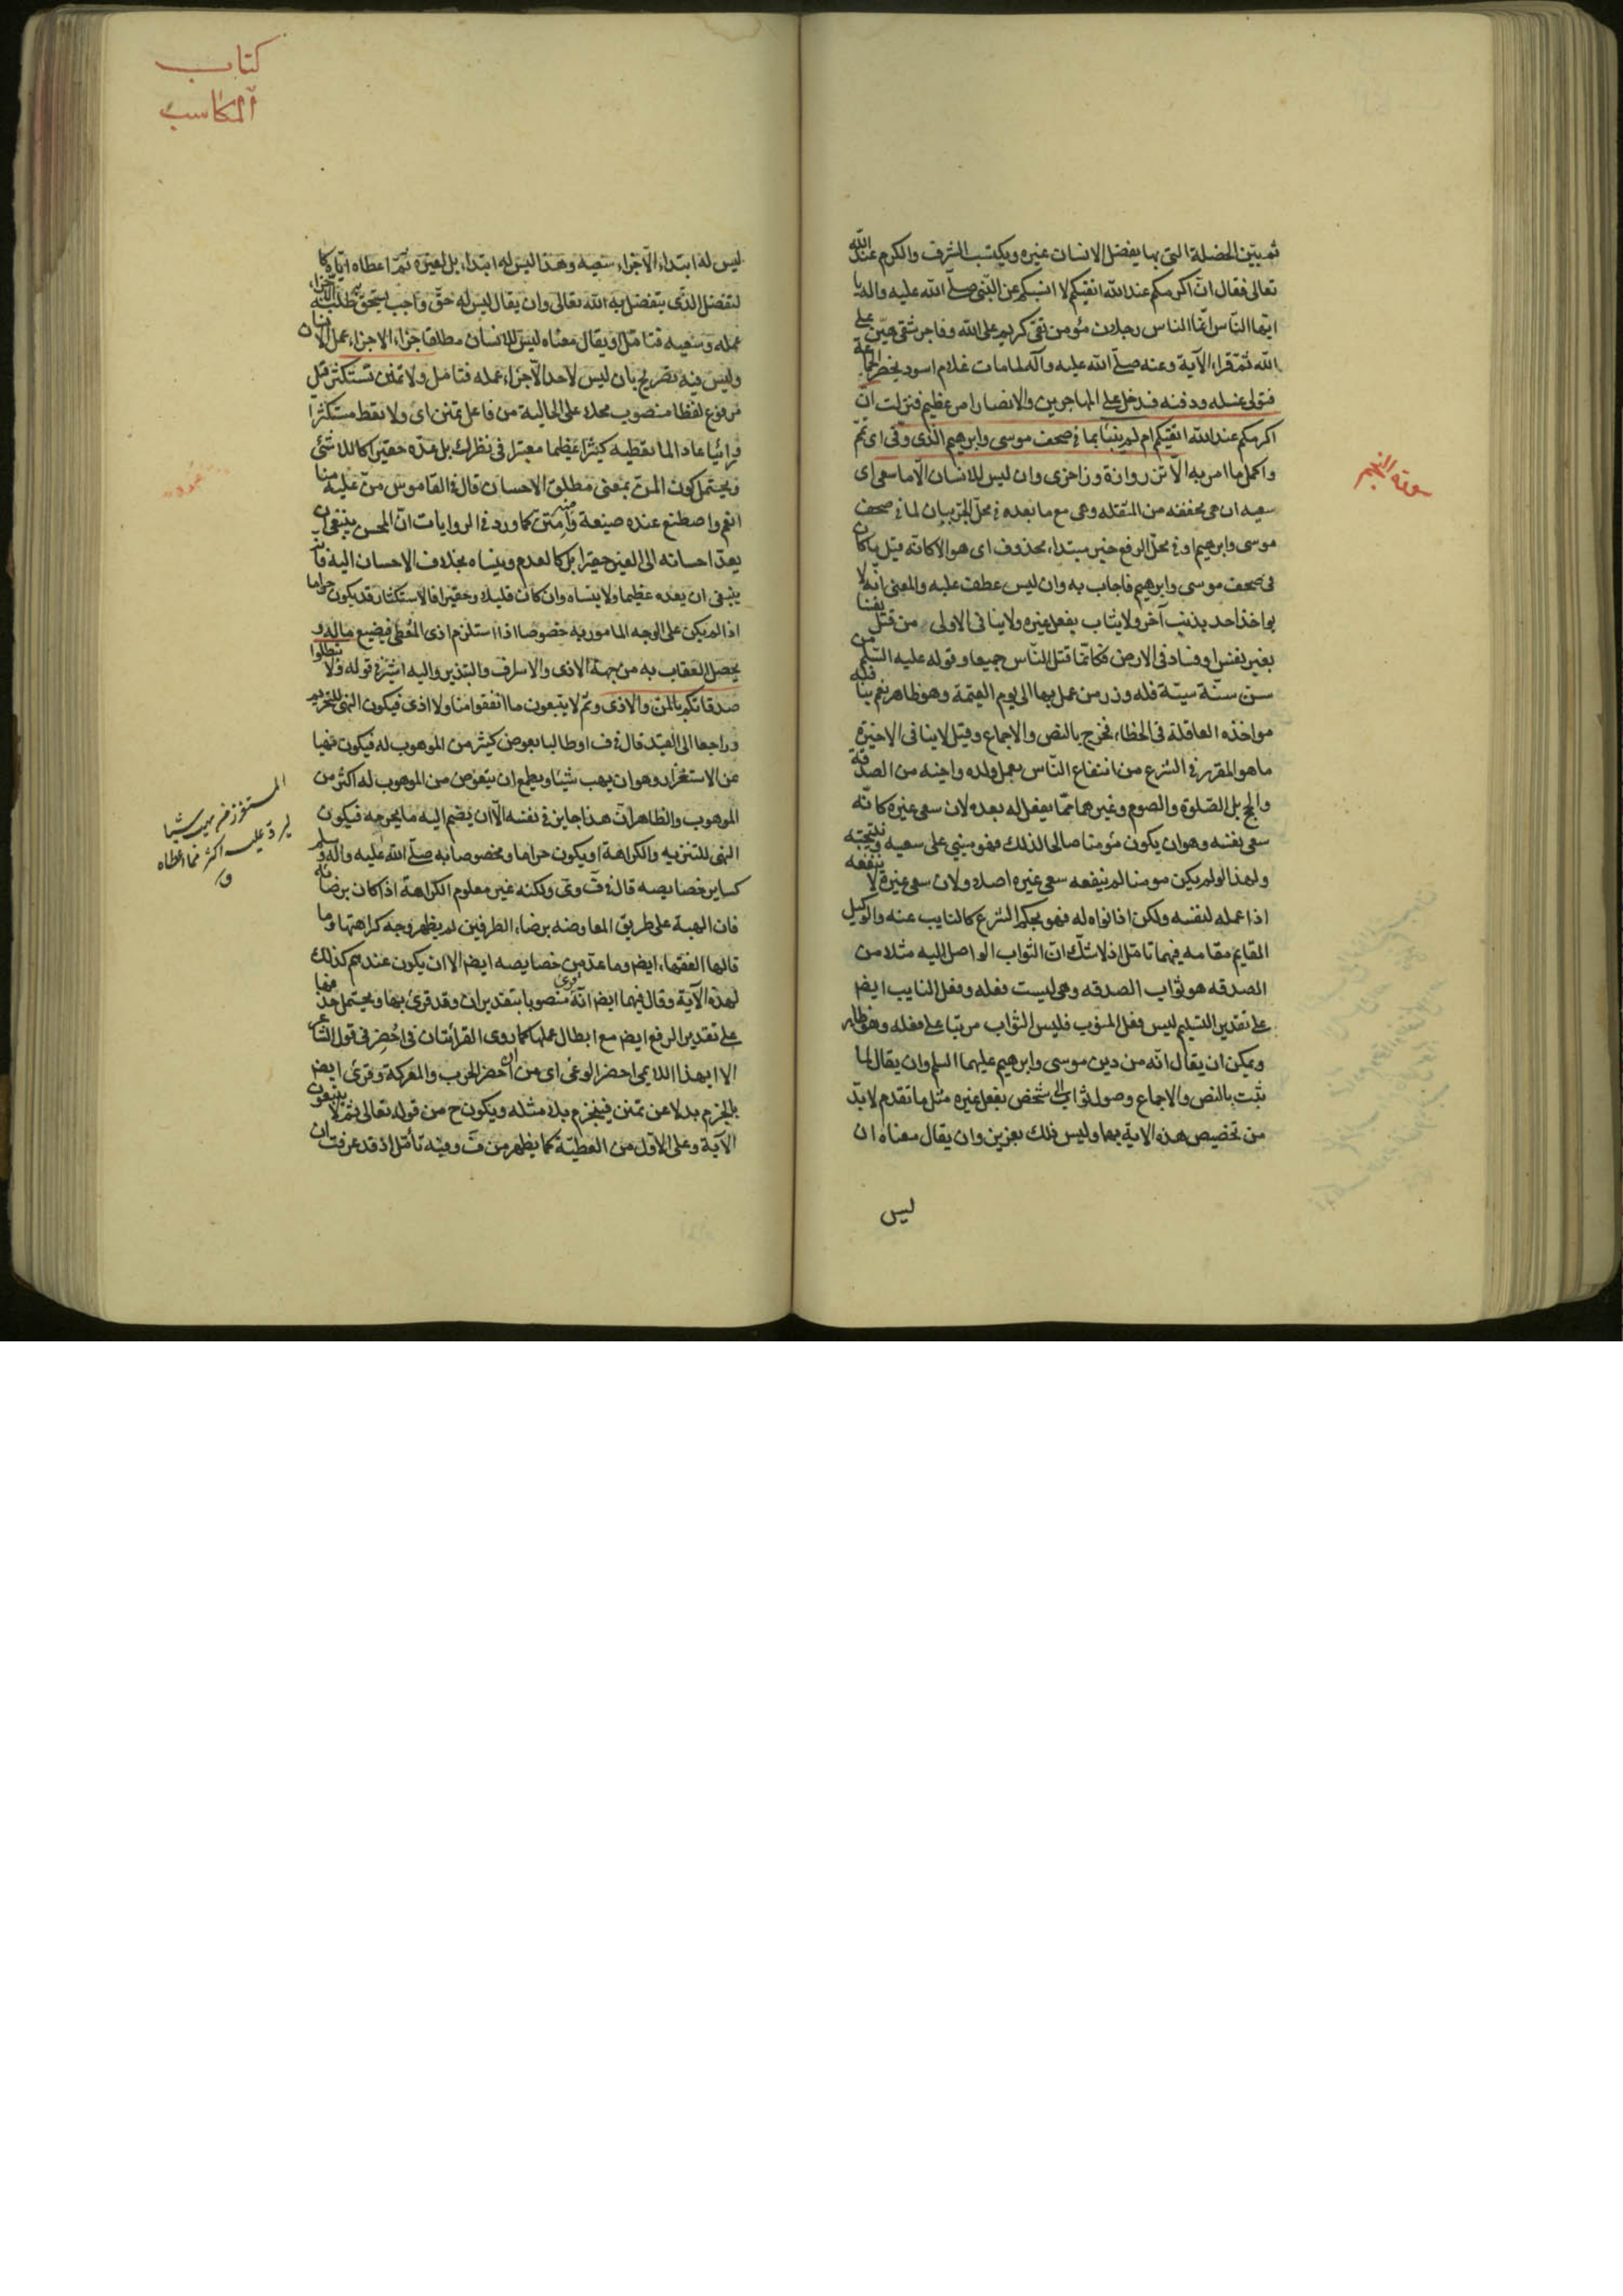 ثم بيّن الخصلة التى بها يفضل الانسان غيره ويكتسب الشرف والكرم عند الله
تعالى فقال انّ اكرمكم عند الله اتقيكم لا انسبكم عن النّبى صلّى الله عليه واله يا
ايّها النّاس انّما الناس رجلان مؤمن تقى كريم على الله وفاجر شقى هيّن على
الله ثمّ قراء الآية وعنه صلّى الله عليه وآله لما مات غلام اسود يحضر الجماعة
فتولى غسله ودفنه فدخل على المهاجرين والانصار امر عظيم فنزلت انّ
اكرمكم عند الله اتقيكم ام لم ينبّا بما فى صحف موسى وابرهيم الّذى وفّى اى تمّ
واكمل ما امر به الّا تزر وازرة وزر اخرى وان ليس للانسان الّا ما سعى اى
سعيه ان هى مخففه من المثقله وهى مع ما بعده فى محلّ الجرّ بيان لما فى صحف
موسى وابرهيم او فى محلّ الرفع خبر مبتداء محذوف اى هو الا كانّه قيل ما كان
فى صحف موسى وابرهيم فاجاب به وان ليس عطف عليه والمعنى انّه لا
يواخذ احد بذنب آخر ولا يثاب بفعل غيره ولا ينافى الاولى من قتل نفسا
بغير نفس او فساد فى الارض فكانّما قتل النّاس جميعا وقوله عليه السّلم من
سنّ سنّة سيّئة فله وزر من عمل بها الى يوم القيمة وهو ظاهر نعم ينا فله
مواخذه العاقلة فى الخطاء فخرج بالنص والاجماع وقيل لا ينافى الاخيرة
ما هو المقرر فى الشرع من انتفاع النّاس بعمل ولده واخيه من الصدقة
والحج بل الصّلوة والصوم وغيرهما ممّا يفعل له بعده لان سعى غيره كانّه
سعى نفسه وهو ان يكون مؤمنا صالحا لذلك فهو مبنى على سعيه ونتيجته
ولهذا لو لم يكن مومنا لم ينفعه سعى غيره اصلا ولان سعى غيره لا ينفعه
اذا عمله لنفسه ولكن اذا نواه له فهو بحكم الشرع كالنايب عنه والوكيل
القايم مقامه فيهما تامّل اذ لا شكّ انّ الثواب الواصل اليه مثلا من
الصدقه هو ثواب الصدقه وهى ليست فعله وفعل النايب ايضا
على تقدير التسليم ليس وفعل المنوب فليس الثواب مرتبا على فعله وهو ظاهر
ويمكن ان يقال انّه من دين موسى وابرهيم عليهما السلم وان يقال لما
ثبت بالنص والاجماع وصول ثواب الى شخص بفعل غيره مثل ما تقدم لا بدّ
من تخصيص هذه الاية بهما وليس ذلك بعزيز وان يقال معناه ان
ليس
سورة النجم
كتاب
المكاسب
ليس له ابتداء الّا جزاء سعيه وهذا ليس له ابتداء بل لغيره ثمّ اعطاه ايّاه كا
لتفضل الذّى يتفضل به الله تعالى وان يقال ليس له حقّ واجب يستحقّ طلبه الّا جزاء
عمله وسعيه فتامّل او يقال معناه ليس للانسان مطلقا جزاء الا جزاء عمل الانسان
وليس فيه تصريح بان ليس لاحد الّا جزاء عمله فتامّل ولا تمنن تستكثر قيل
مرفوع لفظا منصوب محلا على الحالية من فاعل تمنن اى ولا تعط مستكثرا
ورائيا عادا لما تعطيه كثيرا عظيما معتبرا فى نظرك بل عدّه حقيرا كاللاشئ
ويحتمل كون المنّ بمعنى مطلق الاحسان قال فى القاموس منّ عليه منا
انعم واصطنع عنده صنيعة وامتنّ كما ورد فى الروايات انّ المحسن ينبغى ان
يعدّ احسانه الى الغير حقيرا بل كالعدم وينساه بخلاف الاحسان اليه فانه
ينبغى ان يعده عظيما ولا ينساه وان كان قليلا وحقيرا فالاستكثار قد يكون حراما
اذا لم يكن على الوجه المامور به خصوصا اذا استلزم اذى المعطى فيضيع ماله و
يحصل العقاب به من جهة الاذى والاسراف والتبذير واليه اشير فى قوله ولا تبطلوا
صدقاتكم بالمنّ والاذى وثمّ لا يتبعون ما انفقوا منّا ولا اذى فيكون النهى للتحريم
وراجعا الى القيد قال فى ف او طالبا بعوض كثير من الموهوب له فيكون نهيا
عن الاستغزار وهو ان يهب شيئا ويطمع ان يتعوض من الموهوب له اكثر من
الموهوب والظاهر انّ هذا جايز فى نفسه الّا ان يضم اليه ما يخرجه فيكون
النهى للتنزيه والكراهة او يكون حراما ومخصوصا به صلّى الله عليه واله وسلم
كساير خصايصه قال فى ف وى ولكنه غير معلوم الكراهة اذا كان برضائه
فان الهبة على طريق المعاوضه برضاء الطرفين لم يظهر وجه كراهتها وما
قالها الفقهاء ايضا وما عدّ من خصايصه ايضا الا ان يكون عندهم كذلك
لهذه الآية وقال فيهما ايضا انّه قرئ منصوبا بتقدير ان وقد قرئ بها ويحتمل حذفها
على تقدير الرفع ايضا مع ابطال عملها كما روى القرائتان فى احضر فى قول الشاعر
الا ايهذا اللايمى احضر الوغى اى من ان احضر الحرب والمعركة وقرئ ايضا
بالجزم بدلا عن تمنن فينجزم بلا مثله ويكون ح من قوله تعالى ثم لا يتبعون
الآية وعلى الاوّل من العطيّة كما يظهر من ف وفيه تأمّل اذ قد عرفت ان
المستغزر من يهب شيئا
ليردّ عليه اكثر مما اعطاه